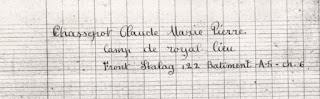 Chassepot Claude Marie Pierre
Camp de royal lieu
Front Stalag 122 Batiment - A5 - ch. 6